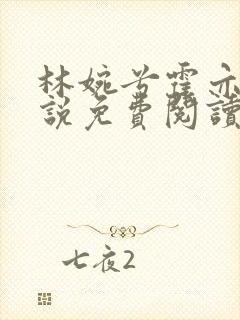 林婉兮霍亦
説免費閱讀
七夜2